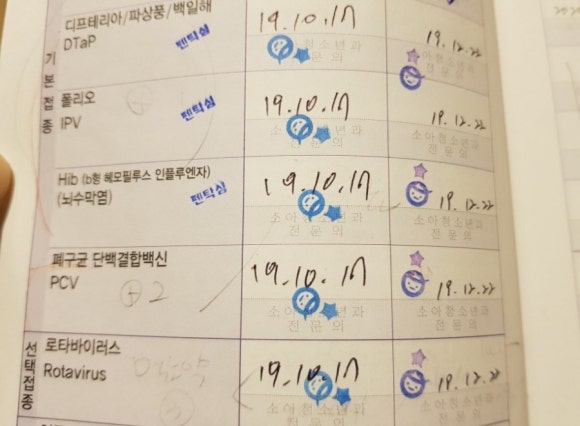 디프테리아/파상풍/백일해
DTaP
펜탁심
19.10.17
19.12.22
소아청소년과
전문의
기본접종
폴리오
IPV
펜탁심
19.10.17
소아청소년과
전문의
19.12.22
소아청소년과
전문의
Hib (b형 헤모필루스 인플루엔자)
(뇌수막염)
펜탁심
19.10.17
소아청소년과
전문의
19.12.22
소아청소년과
전문의
폐구균 단백결합백신
PCV
2
19.10.17
소아청소년과
전문의
19.12.22
소아청소년과
전문의
선택접종
로타바이러스
Rotavirus
19.10.17
소아청소년과
전문의
19.12.22
소아청소년과
전문의